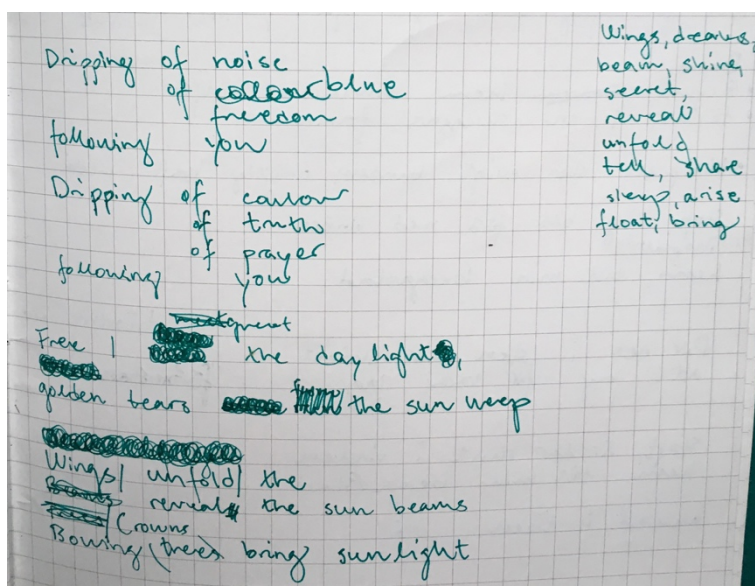 Dripping of noise
of colour blue
freedom
following you
Dripping of
of truth
of prayer
following you
greet
Free I the day light,
golden tears the sun weep
Wings unfold the
reveal the sun beams
Crowns
Bowing trees bring sunlight
Wings, dreams,
beam, shine,
secret,
reveal
unfold
tell, share
sleep, arise
float, bring